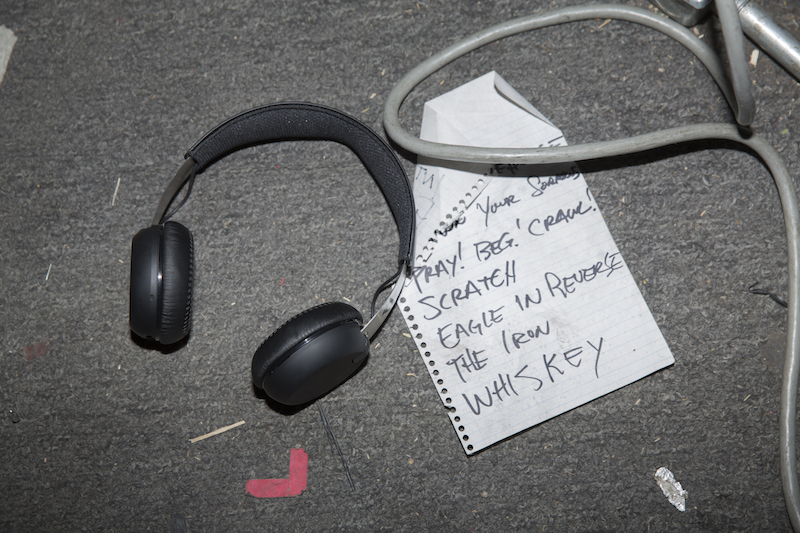 YOUR SORROWS
PRAY! BEG! CRAWL!
SCRATCH
EAGLE IN REVERSE
THE IRON
WHISKEY